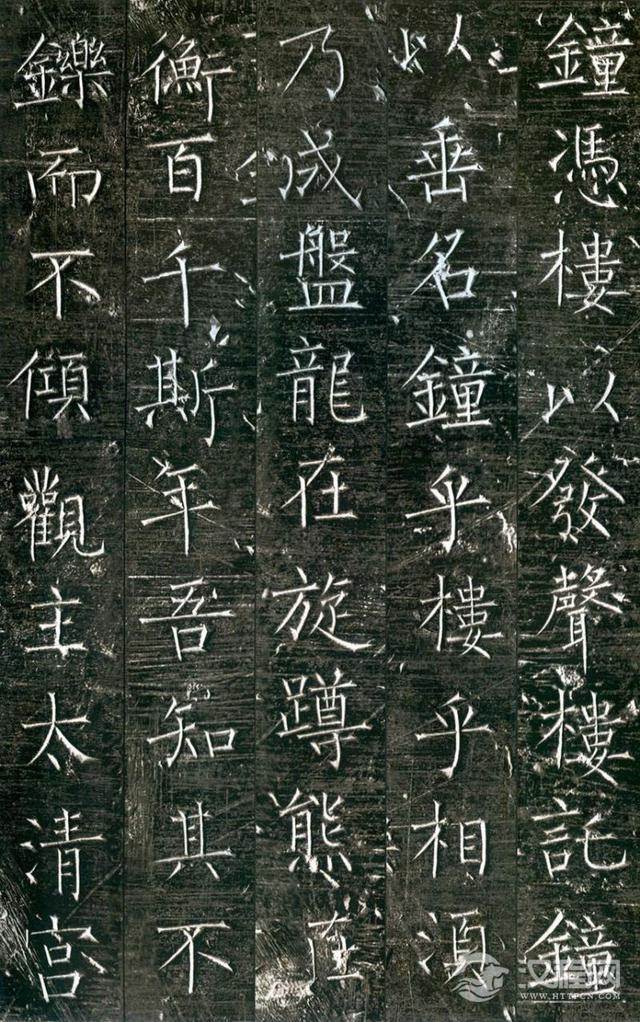 鐘憑樓以發聲樓託鐘
以垂名鐘乎樓乎相須
乃成盤龍在旋蹲熊在
衡百千斯年吾知其不
鑠而不傾觀主太清宮
汉程网
WWW.HTTPCN.COM